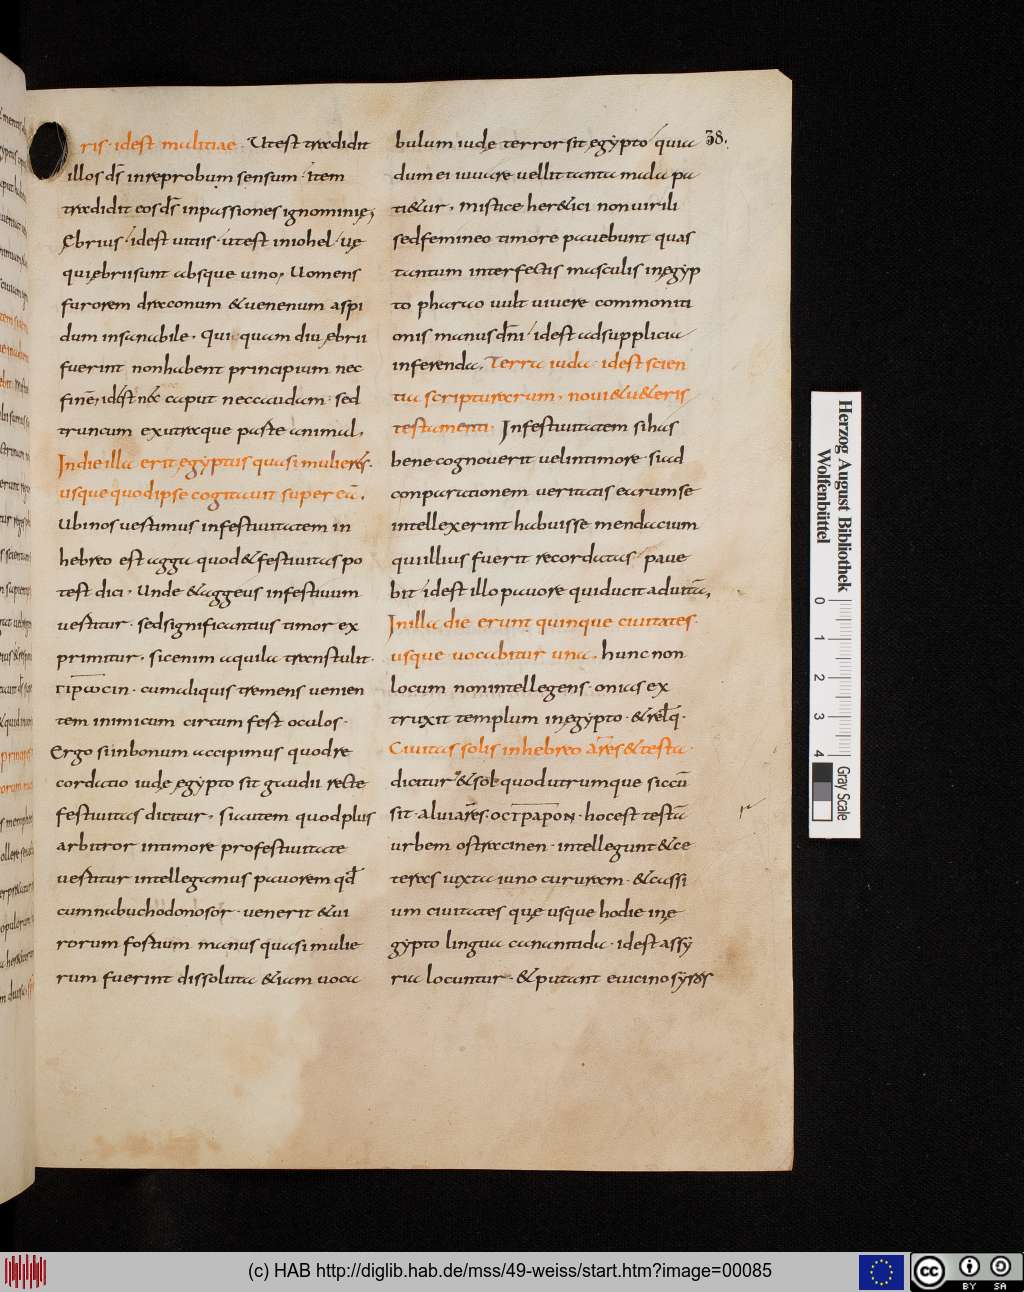 38.
ris · idest malitiae · Utest tradidit
illos d̄s inreprobum sensum · item
tradidit eos d̄s inpassiones ignominię;
Ebrius · idest vitiis · utest iniohel / uę
quiębriisunt absque uino, Uomens
furorem draconum &uenenum aspi
dum insanabile, qui quam diu ębrii
fuerint nonhabent principium nec
finē, caput neccaudam · sed
truncum exutraque parte animal,
Indieilla erit ęgẏptus quasi mulieres.
usque quodipse cogitauit super eā.
Ubinos uestimus infestiuitatem in
hebreo est agga quod&festiuitas po
test dici, Unde &aggeus infestiuum
uestitur · sedsignificantius timor ex
primitur, sicenim aquila transtulit.
ΓΙΡѠϹΙΝ · cumaliquis tremens uenien
tem inimicum circum fest oculos ·
Ergo siinbonum accipimus quodre
cordatio iudę ęgẏpto sit gaudii recte
festiuitas dicitur, siautem quodplus
arbitror intimore profestiuitate
uestitur intellegamus pauorem qđ
cumnabuchodonosor · uenerit &ui
rorum fortium manus quasi mulie
rum fuerint dissolutae &iam uoca
bulum iudę terror sit ęgẏpto / quia
dum ei iuuare uellit tanta mala pa
ti&ur, mistice her&ici non uirili
sedfemineo timore pauebunt quas
tantum interfectis masculis inęgẏp
to pharao uult uiuere commoniti
onis manus dn̄i / idest adsupplicia
inferenda, Terra iuda · idest scien
tia scripturarum, noui&u&eris
testamenti · Infestiuitatem si has
bene cognouerit uelintimore · siad
conparationem ueritatis earumse
intellexerint habuisse mendacium
quiillius fuerit recordatus / paue
bit idest illo pauore quiducit aduitā,
Inilla die erunt quinque ciuitates ·
usque uocabitur una, hunc non
locum nonintellegens · onias ex
truxit templum inęgẏpto · &relq̄ ·
Ciuitas solis inhebreo ares &testa ·
dicitur &sol quodutrumque siccū
sit · aluiares · ΟϹΤΡΑΡΟΝ · hocest testā
urbem ostracinen · intellegunt&ce
teras iuxta iuno cururam · &cassi
um ciuitates quę usque hodie inę
gẏpto lingua cananitida · idest assẏ
ria locuntur · &putant euicino sẏros
Herzog August Bibliothek
Wolfenbüttel
0 1 2 3 4
Gray Scale
(c) HAB http://diglib.hab.de/mss/49-weiss/start.htm?image=00085
cc
BY SA